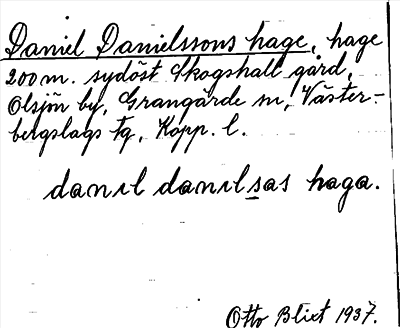 Daniel Danielssons hage, hage
200 m. sydöst Skogshall gård,
Olsjön by, Grangärde sn, Väster-
bergslags tg, Kopp. l.
danıl danılsas haga.
Otto Blixt 1937.